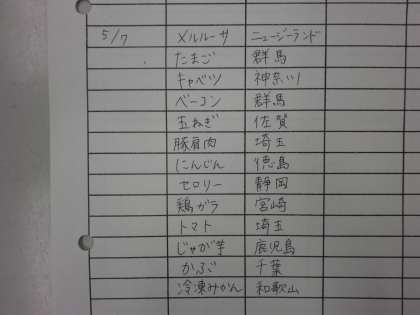 5/7 メルルーサ ニュージーランド
たまご 群馬
キャベツ 神奈川
ベーコン 群馬
玉ねぎ 佐賀
豚肩肉 埼玉
にんじん 徳島
セロリー 静岡
鶏ガラ 宮崎
トマト 埼玉
じゃが芋 鹿児島
かぶ 千葉
冷凍みかん 和歌山